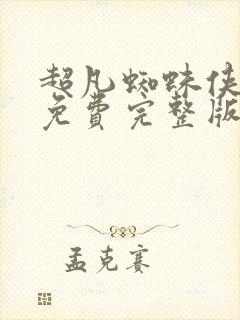 超凡蜘蛛侠
免費完整版
孟克赛